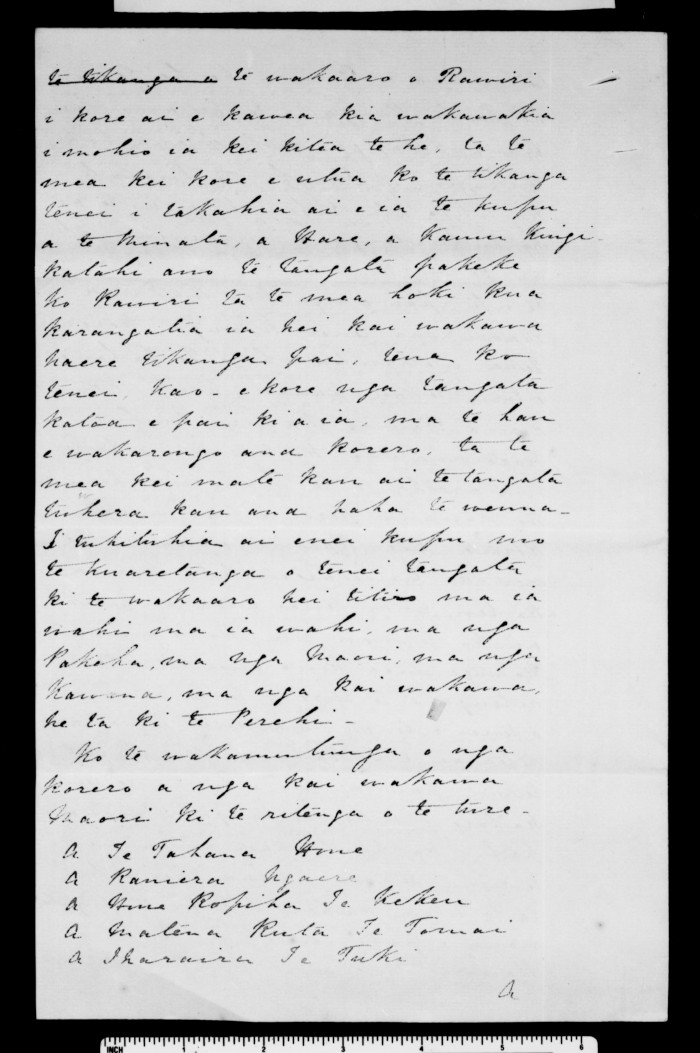 te tikanga a te wakaaro o Rawiri
i kore ai e kawea kia wakawakia
i mohio ia kei kitea te he, ta te
mea kei kore e utua ko te tikanga
tenei i takahia ai e ia te kupu
a te Minata, a Hare, a Kamu Kingi.
katahi ano te tangata pakeke
ko Rawiri ta te mea hoki kua
karangatia ia hei kai wakawa
haere tikanga pai, tena ko
tenei Kao - ekore nga tangata
katoa e pai ki a ia, ma te hau
e wakarongo ana korero, ta te
mea kei mate kau ai te tangata
tuhera kau ana haha te wenua -
I tuhituhia ai enei kupu mo
te kuaretanga o tenei tangata
ki te wakaaro hei titiro ma ia
wahi ma ia wahi, ma nga
Pakeha, ma nga Maori, ma nga
Kawana, ma nga kai wakawa,
he ta ki te Perehi -
Ko te wakamutunga o nga
korero a nga kai wakawa
Maori ki te ritenga o te ture -
A Te Tahana Hme
A Raniera Ngaere
A Hme Ropiha Te Kekeu
A Matena Ruta Te
A Iharaira Te Tuki
A
INCH 1 2 3 4 5 6